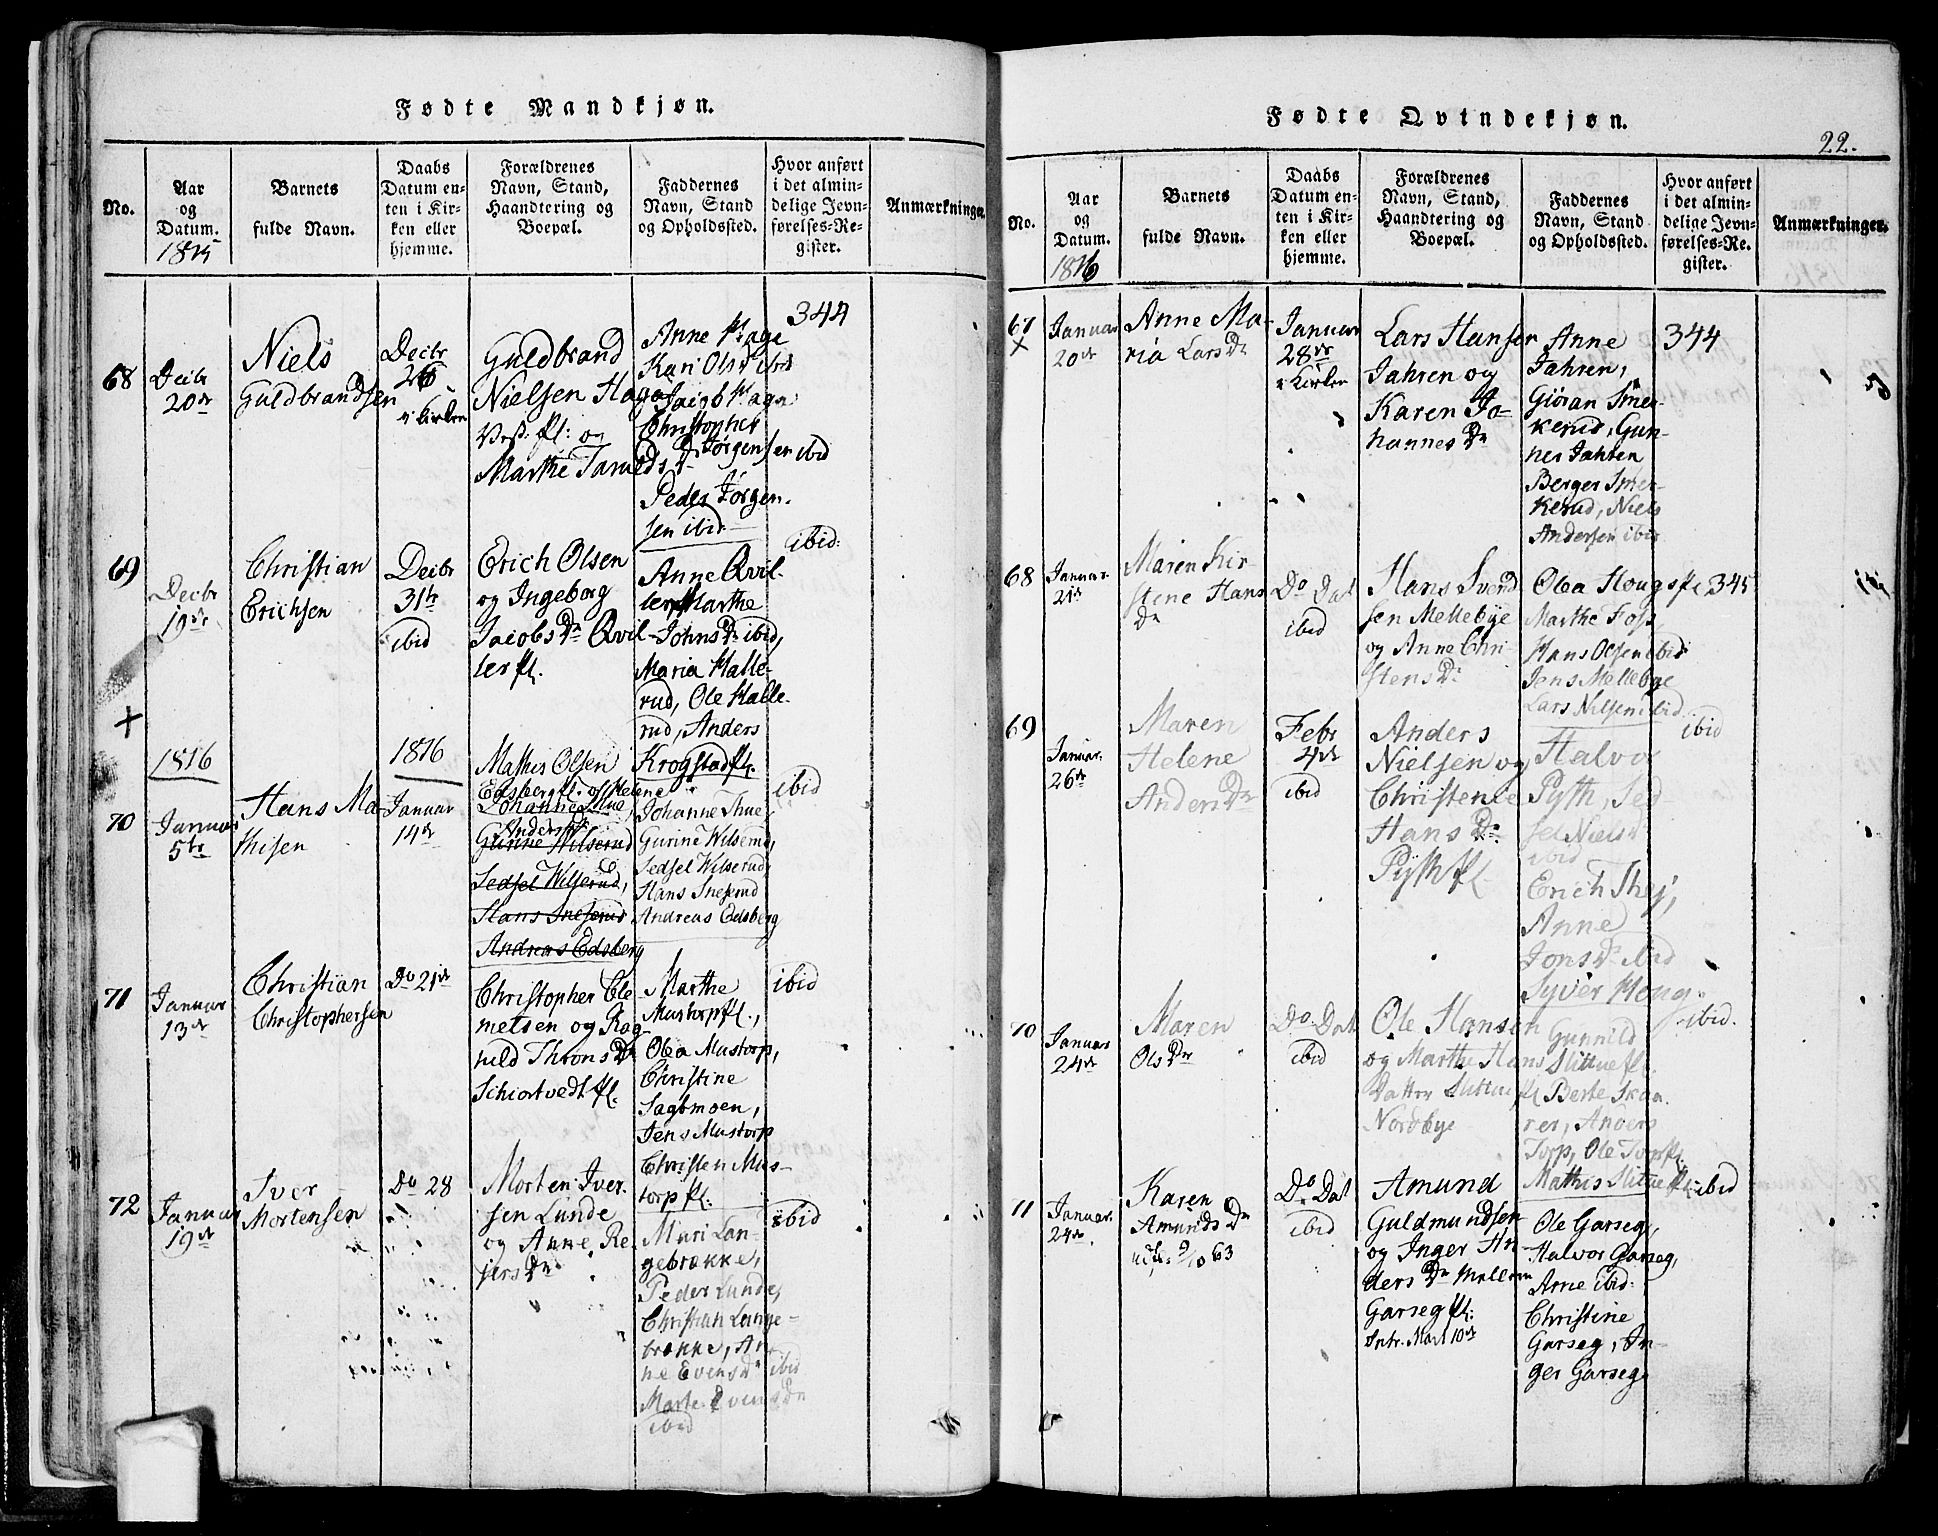 Fødte Mandkjøn.
No.
Aar
og
Datum.
1815
Barnets
fulde Navn.
Daabs
Datum en-
ten i Kir-
ken eller
hjemme.
Forældrenes
Navn, Stand,
Haandtering og
Boepæl.
Faddernes
Navn, Stand
og Opholdssted.
Hvor anført
i det almin-
delige Jevn-
førelses-Re-
gister.
Anmærkninger.
68
Decbr
20de
Niels
Guldbrandsen
Decbr
26
i Kirken
Guldbrand
Nielsen Haga
Vest: fl: og
Marthe
Anne Haga
Kari Olsdr ibid
Jacob Haga
Christopher
Jørgensen ibid
Peder Jørgen-
sen ibid
344
69
Decbr
19de
Christian
Erichsen
Decbr
31te
ibid
Erich Olsen
og Ingeborg
Jacobs Dr Qvil-
ler fl.
Anne Qvil-
ler Marthe
Johns Dr ibid,
Maria Halle-
rud, Ole Halle-
rud, Anders
Krogstad fl.
ibid:
1816
70
Januar
5te
Hans Ma-
thisen
1816
Januar
14de
Mathis Olsen
Edsberg fl. og Helene
Johanne Thue,
Anders Dr
Gurine Wilserud
Sedsel Wilserud,
Hans Sneserud
Andreas Edsberg
Johanne Thue,
Gurine Wilserud,
Sedsel Wilserud,
Hans Sneserud
Andreas Edsberg
ibid
71
Januar
13de
Christian
Christophersen
Do 21de
Christopher Cle-
metsen og Rag-
nild Throns Dr
Schiortvedt fl.
Marthe
Mustorp fl.,
Olea Mustorp,
Christine
Sagbmoen,
Jens Mustorp
Christen Mus-
torp fl.
ibid
72
Januar
19de
Iver
Mortensen
Do 28
Morten Iver-
sen Lunde
og Anne Re-
jers Dr
Mari Lan-
gebrække,
Peder Lunde,
Christian Lange-
brække, An-
ne Evens Dr ibid
Marte Evens Dr
ibid
ibid
Fødte Qvindekjøn.
22.
No.
Aar
og
Datum.
1816
Barnets
fulde Navn.
Daabs
Datum en-
ten i Kir-
ken eller
hjemme.
Forældrenes
Navn, Stand,
Haandtering og
Boepæl.
Faddernes
Navn, Stand
og Opholdssted.
Hvor anført
i det almin-
delige Jevn-
førelses-Re-
gister.
Anmærkninger.
67
Januar
20de
Anne Ma-
ria Lars Dr
Januar
28de
i Kirken
Lars Hansen
Jahren og
Karen Jo-
hannes Dr
Anne
Jahren,
Giøran Smer-
kerud, Gun-
ner Jahren
Berger Smer-
kerud, Niels
Andersen ibid
344
68
Januar
21de
Maren Kir-
stene Hans
Dr
Do Dat
ibid
Hans Svend-
sen Mellebye
og Anne Chri-
stens Dr
Olea Hougs fl.
Marthe Foss
Hans Olsen ibid
Jens Mellebye
Lars Nilsen ibid
345
69
Januar
26de
Maren
Helene
Anders Dr
Febr
4de
ibid
Anders
Nielsen og
Christense
Hans Dr
Pyth fl
Halvo
Pyth, Sed-
sel Niels Dr
ibid
Erich Thej,
Anne
Jons Dr ibid
Syver Houg.
ibid
70
Januar
24de
Maren
Ols Dr
Do Dat
ibid
Ole Hansen
og Marthe Hans
Datter Slittue fl
Nordbye
Gunnild
Slittue fl.
Berte Skaa-
rer, Anders
Torp, Ole Torp fl.
Mathis Slittue fl.
ibid.
71
Januar
24de
Karen
Amunds Dr
Do Dat
ibid
Amund
Guldmundsen
og Inger An-
ders Dr Mellem
Garseg fl:
Intr. Mart 10de
Ole Garseg,
Halvor Garseg,
Arne ibid:
Christine
Garseg, In-
ger Garseg
ibid